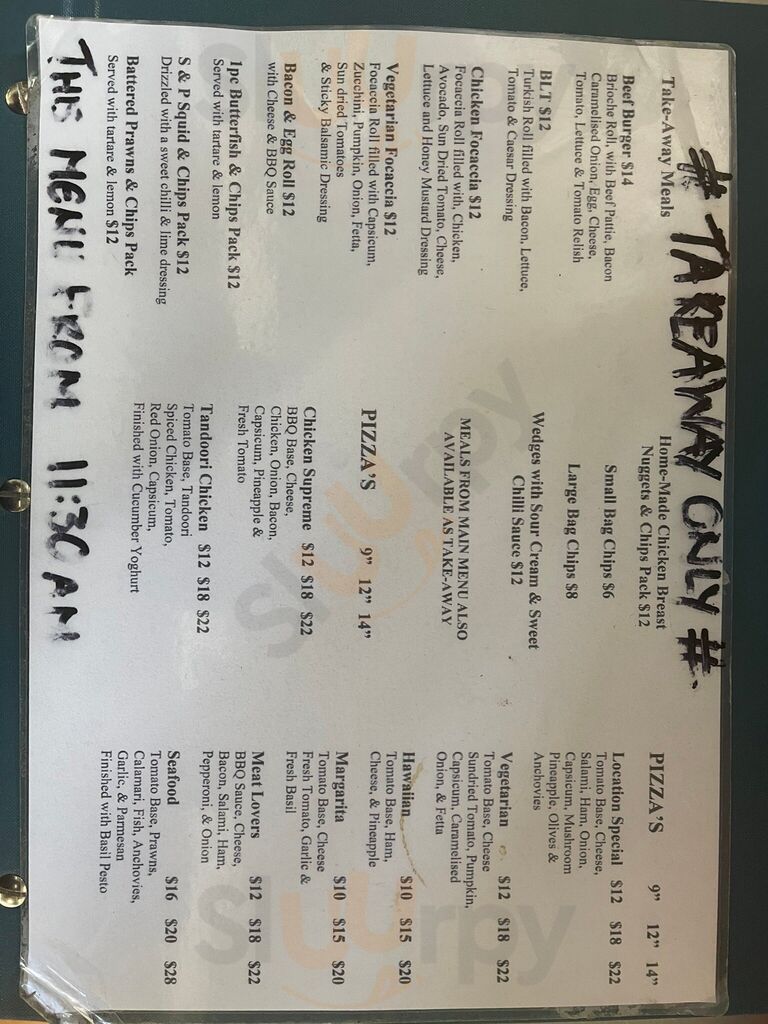 # TAKEAWAY ONLY #.
Take-Away Meals
Beef Burger $14
Brioche Roll, with Beef Pattie, Bacon
Caramelised Onion, Egg, Cheese,
Tomato, Lettuce & Tomato Relish
BLT $12
Turkish Roll filled with Bacon, Lettuce,
Tomato & Caesar Dressing
Chicken Focaccia $12
Focaccia Roll filled with, Chicken,
Avocado, Sun Dried Tomato, Cheese,
Lettuce and Honey Mustard Dressing
Vegetarian Focaccia $12
Focaccia Roll filled with Capsicum,
Zucchini, Pumpkin, Onion, Fetta,
Sun dried Tomatoes
& Sticky Balsamic Dressing
Bacon & Egg Roll $12
with Cheese & BBQ Sauce
1pc Butterfish & Chips Pack $12
Served with tartare & lemon
S & P Squid & Chips Pack $12
Drizzled with a sweet chilli & lime dressing
Battered Prawns & Chips Pack
Served with tartare & lemon $12
Home-Made Chicken Breast
Nuggets & Chips Pack $12
Small Bag Chips $6
Large Bag Chips $8
Wedges with Sour Cream & Sweet
Chilli Sauce $12
MEALS FROM MAIN MENU ALSO
AVAILABLE AS TAKE-AWAY
PIZZA'S 9" 12" 14"
Chicken Supreme $12 $18 $22
BBQ Base, Cheese,
Chicken, Onion, Bacon,
Capsicum, Pineapple &
Fresh Tomato
Tandoori Chicken $12 $18 $22
Tomato Base, Tandoori
Spiced Chicken, Tomato,
Red Onion, Capsicum,
Finished with Cucumber Yoghurt
PIZZA'S 9" 12" 14"
Location Special $12 $18 $22
Tomato Base, Cheese,
Salami, Ham, Onion,
Capsicum, Mushroom
Pineapple, Olives &
Anchovies
Vegetarian $12 $18 $22
Tomato Base, Cheese
Sundried Tomato, Pumpkin,
Capsicum, Caramelised
Onion, & Fetta
Hawaiian $10 $15 $20
Tomato Base, Ham,
Cheese, & Pineapple
Margarita $10 $15 $20
Tomato Base, Cheese
Fresh Tomato, Garlic &
Fresh Basil
Meat Lovers $12 $18 $22
BBQ Sauce, Cheese,
Bacon, Salami, Ham,
Pepperoni, & Onion
Seafood $16 $20 $28
Tomato Base, Prawns,
Calamari, Fish, Anchovies,
Garlic, & Parmesan
Finished with Basil Pesto
THIS MENU FROM 11:30 AM
Sluurpy
Sluurpy
Sluurpy